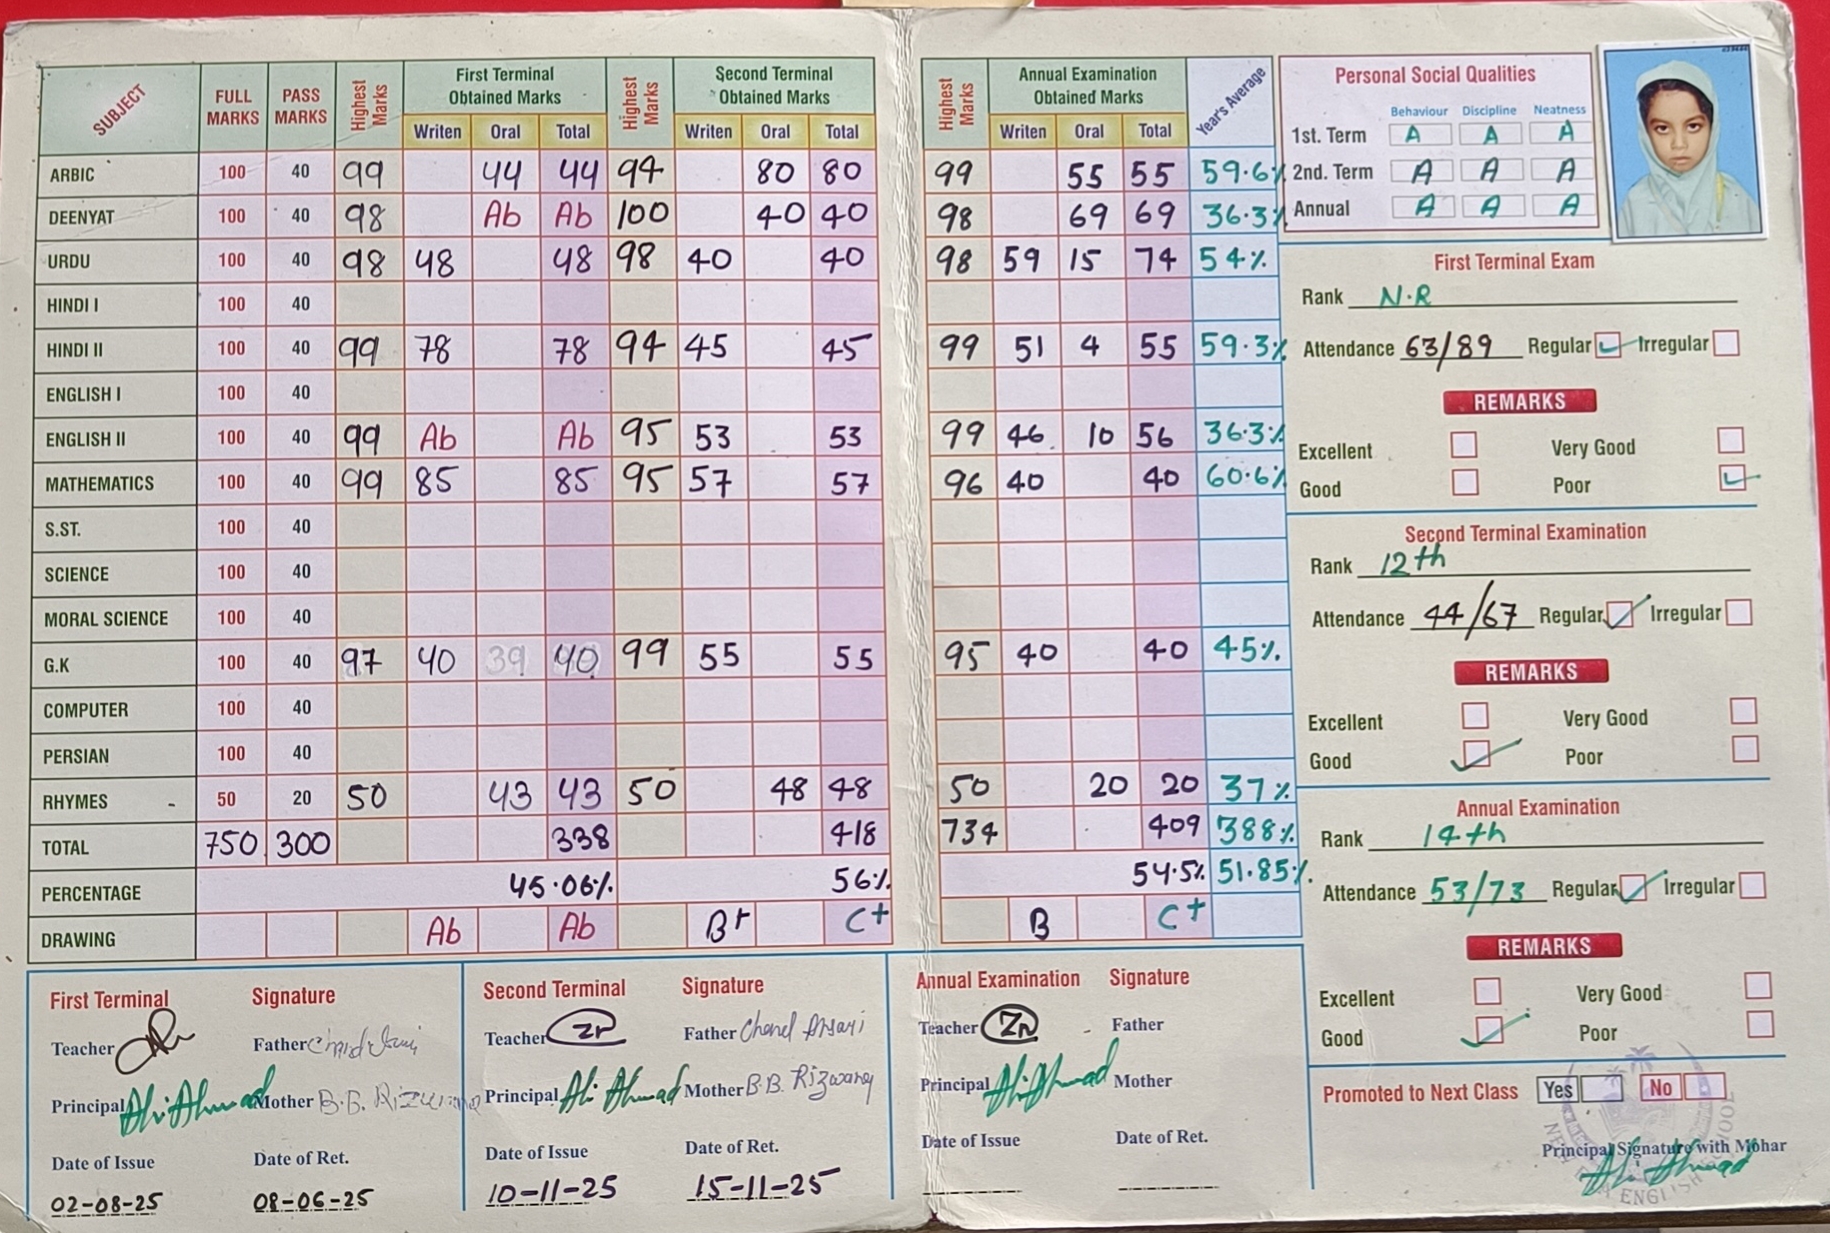 SUBJECT FULL MARKS PASS MARKS Highest Marks First Terminal Obtained Marks Highest Marks Second Terminal Obtained Marks Highest Marks Annual Examination Obtained Marks Year's Average
Writen Oral Total Writen Oral Total Writen Oral Total
ARBIC 100 40 99 44 44 94 80 80 99 55 55 59.6%
DEENYAT 100 40 98 Ab Ab 100 40 40 98 69 69 36.3%
URDU 100 40 98 48 48 98 40 40 98 59 15 74 54%
HINDI I 100 40
HINDI II 100 40 99 78 78 94 45 45 99 51 4 55 59.3%
ENGLISH I 100 40
ENGLISH II 100 40 99 Ab Ab 95 53 53 99 46 10 56 36.3%
MATHEMATICS 100 40 99 85 85 95 57 57 96 40 40 60.6%
S.ST. 100 40
SCIENCE 100 40
MORAL SCIENCE 100 40
G.K 100 40 97 40 39 40 99 55 55 95 40 40 45%
COMPUTER 100 40
PERSIAN 100 40
RHYMES 50 20 50 43 43 50 48 48 50 20 20 37%
TOTAL 750 300 338 418 734 409 388%
PERCENTAGE 45.06% 56% 54.5% 51.85%
DRAWING Ab Ab B+ C+ B C+
First Terminal Signature
Teacher Father
Principal Ali Ahmad Mother B.B. Rizwana
Date of Issue Date of Ret.
02-08-25 08-06-25
Second Terminal Signature
Teacher Zn Father Chand Ansari
Principal Ali Ahmad Mother B.B. Rizwana
Date of Issue Date of Ret.
10-11-25 15-11-25
Annual Examination Signature
Teacher Zn Father
Principal Ali Ahmad Mother
Date of Issue Date of Ret.
Personal Social Qualities
Behaviour Discipline Neatness
1st. Term A A A
2nd. Term A A A
Annual A A A
First Terminal Exam
Rank N.R
Attendance 63/89 Regular Irregular
REMARKS
Excellent Very Good
Good Poor
Second Terminal Examination
Rank 12th
Attendance 44/67 Regular Irregular
REMARKS
Excellent Very Good
Good Poor
Annual Examination
Rank 14th
Attendance 53/73 Regular Irregular
REMARKS
Excellent Very Good
Good Poor
Promoted to Next Class Yes No
Principal Signature with Mohar
Ali Ahmad